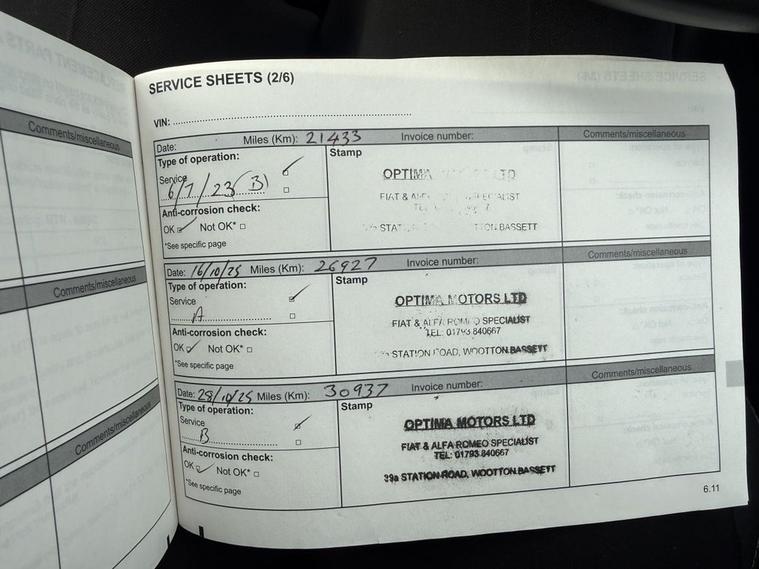 Comments/miscellaneous
Comments/miscellaneous
Comments/miscellaneous
SERVICE SHEETS (2/6)
VIN:
Date: Miles (Km): 21433 Invoice number: Comments/miscellaneous
Type of operation:
Service
6/7/23 (B)
Anti-corrosion check:
OK Not OK*
*See specific page
Stamp
OPTIMA LTD
FIAT &
STAT TTON BASSETT
Date: 16/10/25 Miles (Km): 26927 Invoice number: Comments/miscellaneous
Type of operation:
Service
A
Anti-corrosion check:
OK Not OK*
*See specific page
Stamp
OPTIMA MOTORS LTD
FIAT & ALFA ROMEO SPECIALIST
TEL: 01793 840667
STATION ROAD, WOOTTON BASSETT
Date: 28/10/25 Miles (Km): 30937 Invoice number: Comments/miscellaneous
Type of operation:
Service
B
Anti-corrosion check:
OK Not OK*
*See specific page
Stamp
OPTIMA MOTORS LTD
FIAT & ALFA ROMEO SPECIALIST
TEL: 01793 840667
39a STATION ROAD, WOOTTON BASSETT
6.11